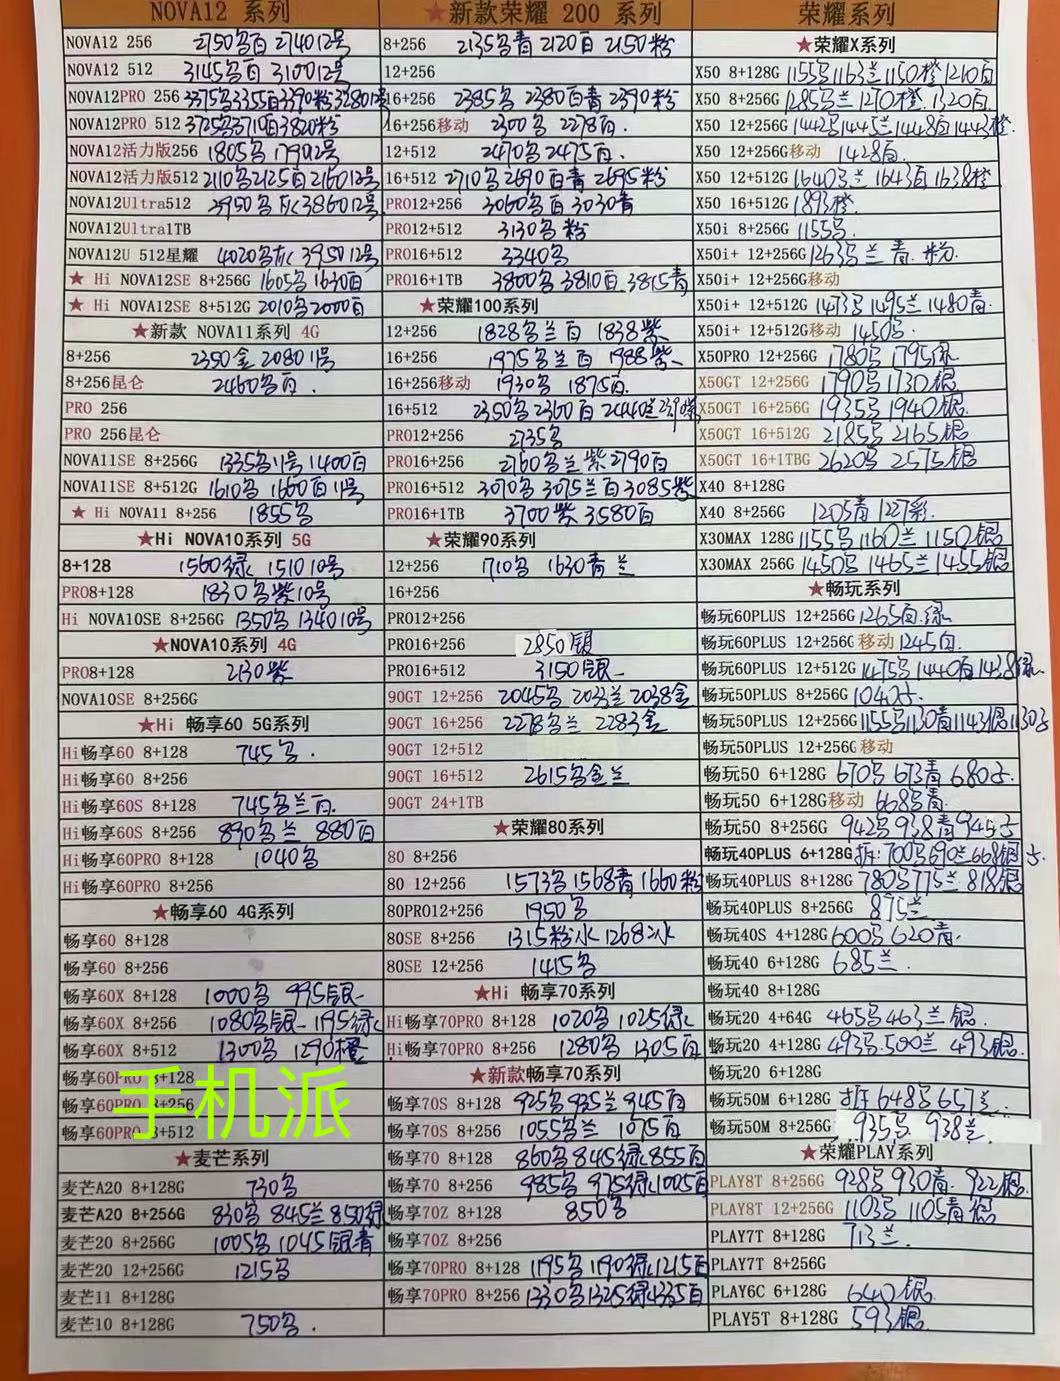 NOVA12 系列
NOVA12 256 2750名百 274012号
NOVA12 512 3145名百 310012号
NOVA12PRO 256
NOVA12PRO 512 3725名3710百3820粉
NOVA12活力版256 1805名 179012号
NOVA12活力版512 2110名2125百216012号
NOVA12Ultra512 3950名灰386012号
NOVA12Ultra1TB
NOVA12U 512星耀 4020名灰 395012号
★ Hi NOVA12SE 8+256G 1605名1630百
★ Hi NOVA12SE 8+512G 2010名2000百
★新款 NOVA11系列 4G
8+256 2350金 2080 11号
8+256昆仑 2460名百.
PRO 256
PRO 256昆仑
NOVA11SE 8+256G 1335名11号1400百
NOVA11SE 8+512G 1610名 1600百11号
★ Hi NOVA11 8+256 1855名
★Hi NOVA10系列 5G
8+128 1560绿 1510 10号
PRO8+128 1830名紫10号
Hi NOVA10SE 8+256G 1350名 1340 10号
★NOVA10系列 4G
PRO8+128 2130紫
NOVA10SE 8+256G
★Hi 畅享60 5G系列
Hi畅享60 8+128 745名.
Hi畅享60 8+256
Hi畅享60S 8+128 745名兰百.
Hi畅享60S 8+256 890名兰 880百
Hi畅享60PRO 8+128 1040名
Hi畅享60PRO 8+256
★畅享60 4G系列
畅享60 8+128
畅享60 8+256
畅享60X 8+128 1000名 995银
畅享60X 8+256 1080名银 1195绿
畅享60X 8+512 1300名 1290橙
畅享60PRO 8+128
畅享60PRO 8+256
畅享60PRO 8+512
手机派
★麦芒系列
麦芒A20 8+128G 730名
麦芒A20 8+256G 830名 845兰 850绿
麦芒20 8+256G 1005名 1045银青
麦芒20 12+256G 1215名
麦芒11 8+128G
麦芒10 8+128G 750名.
★新款荣耀 200 系列
8+256 2135名青 2120百 2150粉
12+256
16+256 2385名 2380百青 2390粉
16+256移动 2300名 2278百.
12+512 2470名2475百.
16+512 2710名2690百青 2695粉
PRO12+256 3060名百 3030青
PRO12+512 3130名粉
PRO16+512 3340名
PRO16+1TB 3800名 3810百 3815青
★荣耀100系列
12+256 1828名兰百 1838紫
16+256 1975名兰百 1988紫
16+256移动 1930名 1875百.
16+512 2350名2360百 2440兰
PRO12+256 2735名
PRO16+256 2760名兰紫2790百
PRO16+512 3070名 3075兰百3085紫
PRO16+1TB 3700紫 3580百
★荣耀90系列
12+256 1710名 1630青兰
16+256
PRO12+256
PRO16+256 2850银
PRO16+512 3150银
90GT 12+256 2045名 2033兰 2038金
90GT 16+256 2278名兰 2283金
90GT 12+512
90GT 16+512 2615名金兰
90GT 24+1TB
★荣耀80系列
80 8+256
80 12+256 1573名1568青1660粉
80PRO12+256 1950名
80SE 8+256 1315粉冰 1268冰
80SE 12+256 1415名
★Hi 畅享70系列
Hi畅享70PRO 8+128 1020名 1025绿
Hi畅享70PRO 8+256 1280名 1305百
★新款畅享70系列
畅享70S 8+128 925名935兰945百
畅享70S 8+256 1055名兰 1075百
畅享70 8+128 860名845绿855百
畅享70 8+256 985名 975绿1005百
畅享70Z 8+128 850名
畅享70Z 8+256
畅享70PRO 8+128 1195名1190绿1215百
畅享70PRO 8+256 1330名1325绿1335百
荣耀系列
★荣耀X系列
X50 8+128G 1155名1163兰1150橙1210百
X50 8+256G 1285名兰 1270橙.1320百.
X50 12+256G 1442名1445兰1448百1443橙.
X50 12+256G移动 1428百.
X50 12+512G 1640名兰 1643百1638橙
X50 16+512G 1893橙.
X50i 8+256G 1155名.
X50i+ 12+256G 1263名兰 青. 粉.
X50i+ 12+256G移动
X50i+ 12+512G 1473名1495兰1480青.
X50i+ 12+512G移动 1450名.
X50PRO 12+256G 1780名 1795绿.
X50GT 12+256G 1790名1730银
X50GT 16+256G 1935名 1940银.
X50GT 16+512G 2185名 2165银
X50GT 16+1TBG 2620名 2575银
X40 8+128G
X40 8+256G 1205青 1227彩.
X30MAX 128G 1155名1160兰 1150银
X30MAX 256G 1450名1465兰1455银
★畅玩系列
畅玩60PLUS 12+256G 1265百.绿.
畅玩60PLUS 12+256G 移动 1245百.
畅玩60PLUS 12+512G 1475名1440百1438绿.
畅玩50PLUS 8+256G 1040
畅玩50PLUS 12+256G 1155名1130青1143银1130
畅玩50PLUS 12+256G 移动
畅玩50 6+128G 670名 673青 680
畅玩50 6+128G移动 668名青.
畅玩50 8+256G 942名938青945
畅玩40PLUS 6+128G 拆:700名690兰668银
畅玩40PLUS 8+128G 780名775兰 818银
畅玩40PLUS 8+256G 895兰
畅玩40S 4+128G 600名620青.
畅玩40 6+128G 685兰.
畅玩40 8+128G
畅玩20 4+64G 465名463兰 银.
畅玩20 4+128G 493名.500兰 493银.
畅玩20 6+128G
畅玩50M 6+128G 拆648名657兰.
畅玩50M 8+256G 935名. 938兰.
★荣耀PLAY系列
PLAY8T 8+256G 928名930青. 922银.
PLAY8T 12+256G 1103名 1105青银
PLAY7T 8+128G 713兰.
PLAY7T 8+256G
PLAY6C 6+128G 640银.
PLAY5T 8+128G 593银.